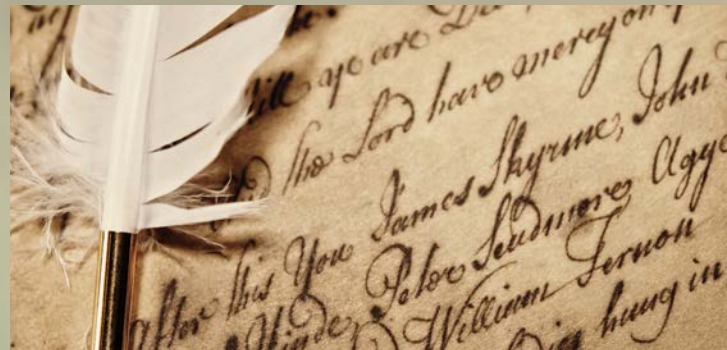 till ye are Dea
the Lord have mercy on y
After this You James Skyrme, John
Hinde, Peter Scudmore, Agge
William Fernon
hung in